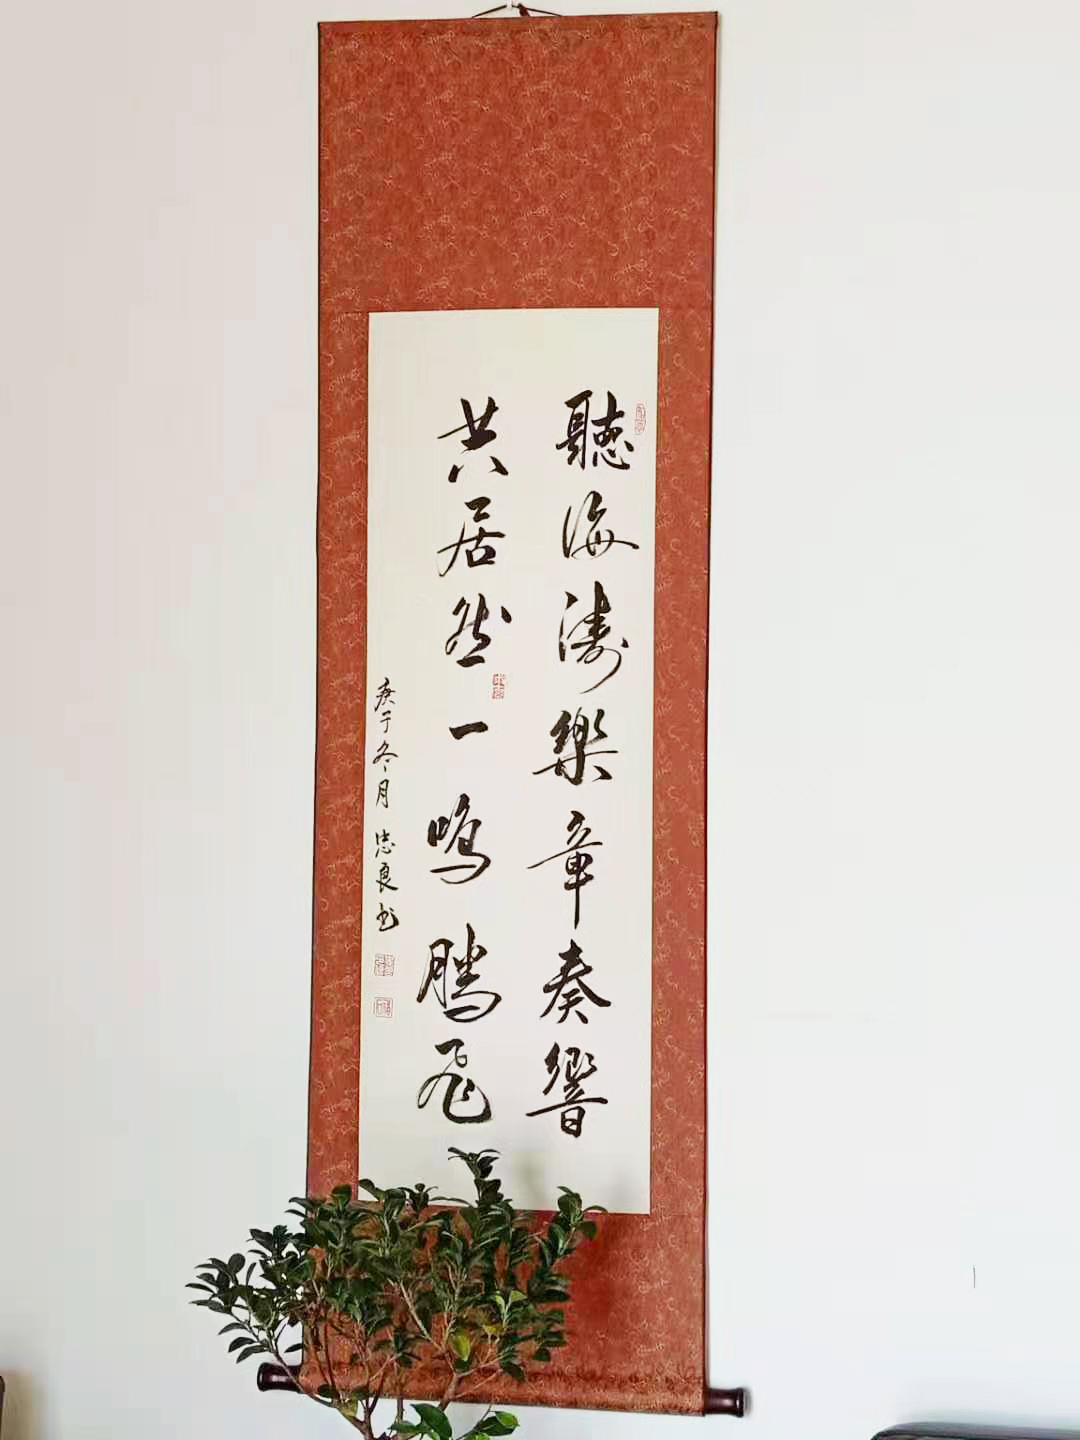 聽海濤樂章奏響
共居然一鳴騰飛
庚子冬月忠良书